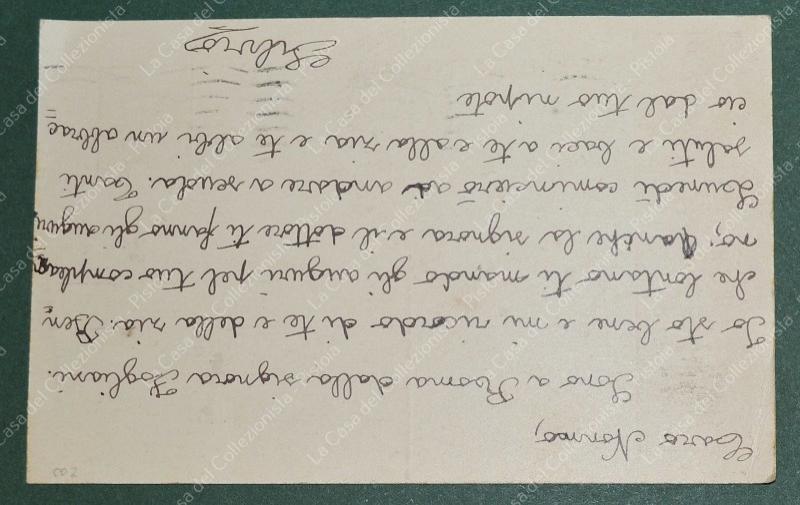 Caro Nonno,
Sono a Roma dalla signora Fogliani.
Io sto bene e mi ricordo di te e della zia. Ben
che lontano ti mando gli auguri pel tuo complean
no; anche la signora e il dottore ti fanno gli auguri.
Lunedì comincierò ad andare a scuola. Tanti
saluti e baci a te e alla zia e te altri un abbrac
cio dal tuo nipote
Silvio